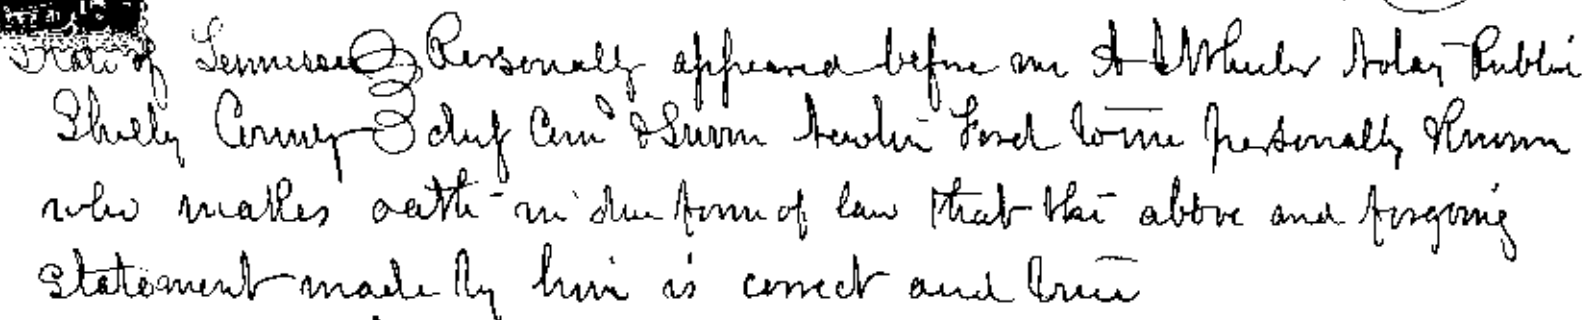 State of Tennessee Personally appeared before me A S Wheeler Notary Public
Shelby County duly Com & Sworn Newlin Ford to me personally Known
who makes oath in due form of law that the above and forgoing
Statement made by him is correct and true